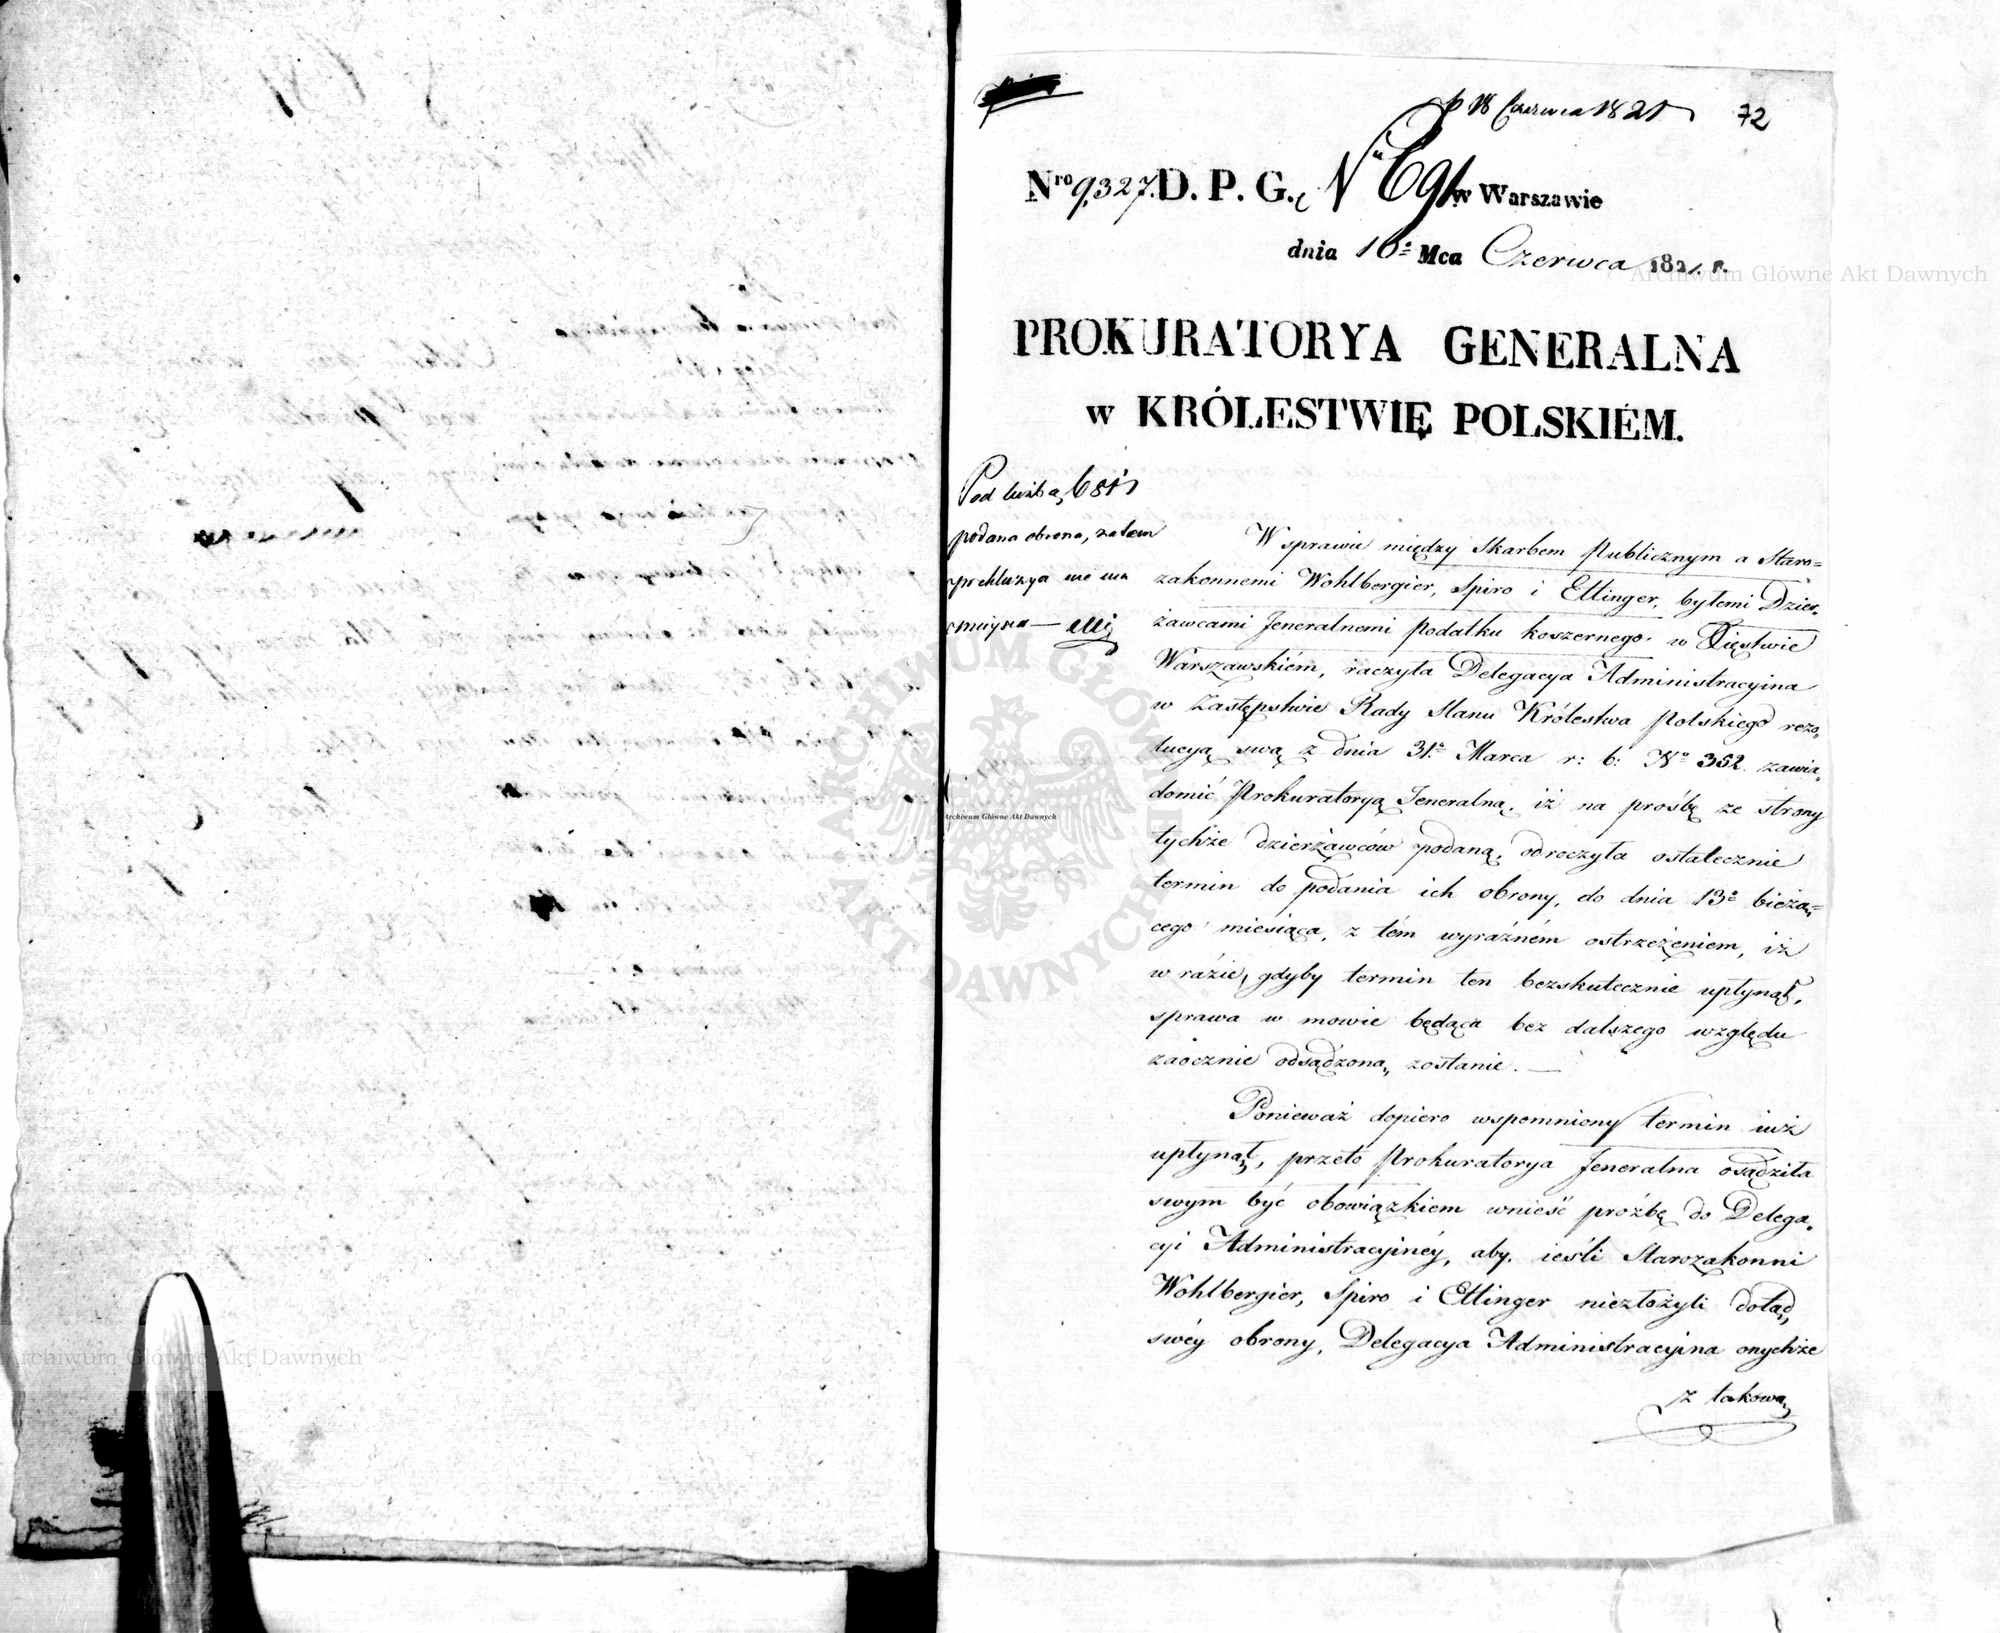 p 18 Czerwca 1821
72
Nro 9,327. D. P. G. N 691 w Warszawie
dnia 16 Mca Czerwca 1821. r.
PROKURATORYA GENERALNA
w KRÓLESTWIĘ POLSKIÉM.
Pod liczbą 681
podana obrona, zatem
prekluzya nie ma
W sprawie między Skarbem Publicznym a Staro=
zakonnemi Wohlbergier, Spiro i Ettinger, byłemi Dzier,
żawcami Jeneralnemi podatku koszernego w Xięstwie
Warszawskiém, raczyła Delegacya Administracyina
w Zastępstwie Rady Stanu Królestwa Polskiego rezo,
lucyą swą z dnia 31. Marca r: b: No 352. zawia,
domić Prokuratoryą Jeneralną, iż na prośbę ze strony
tychże dzierżawców podaną, odroczyła ostatecznie
termin do podania ich obrony, do dnia 13 bieżą=
cego miesiąca, z tém wyraźném ostrzeżeniem, iż
w rázie, gdyby termin ten bezskutecznie upłynął,
sprawa w mowie będąca bez dalszego względu
zaocznie odsądzoną zostanie. —
Ponieważ dopiero wspomniony termin iuż
upłynął, przeto Prokuratorya Jeneralna osądziła
swym być obowiązkiem wnieść proźbę do Delega,
cyi Administracyinéy, aby, ieśli Starozakonni
Wohlbergier, Spiro i Ettinger niezłożyli dotąd,
swéy obrony, Delegacya Administracyina onychże
z takową
Archiwum Główne Akt Dawnych
Archiwum Główne Akt Dawnych
Archiwum Główne Akt Dawnych
ARCHIWUM GŁÓWNE AKT DAWNYCH